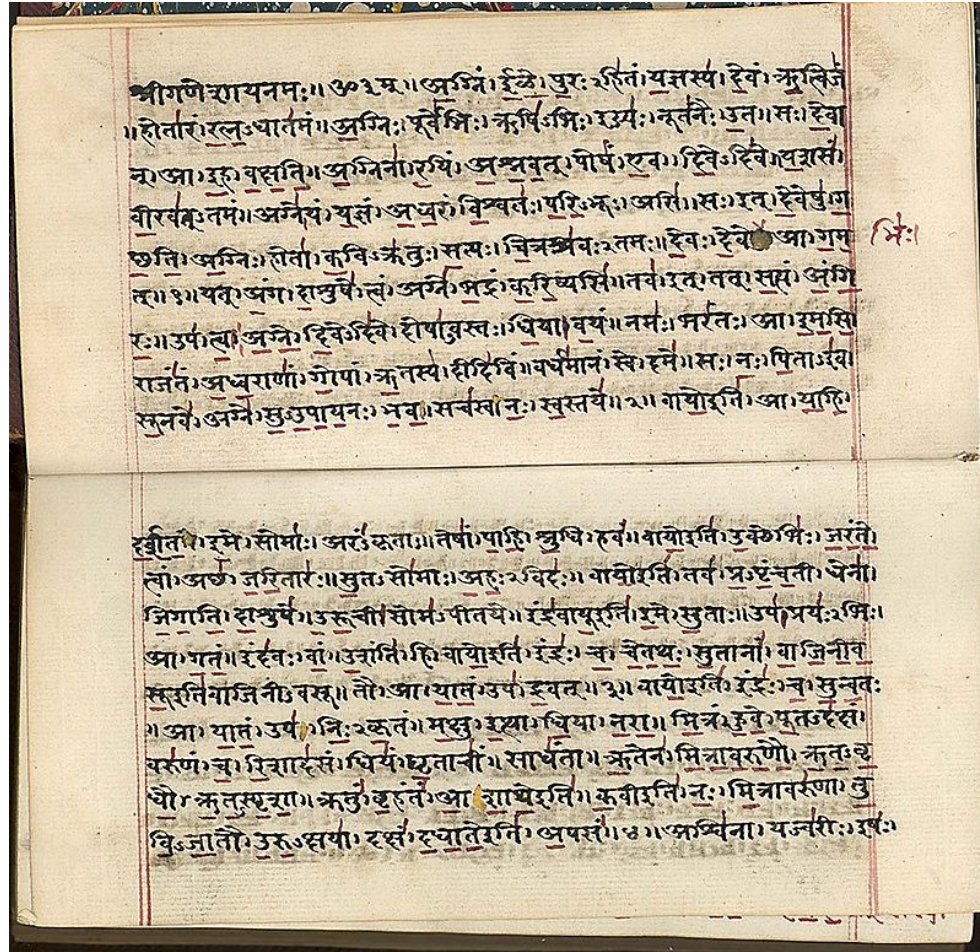 श्रीगणेशायनमः॥ॐ३म्॥अग्निं। ईळे। पुरःऽहितं। यज्ञस्य। देवं। ऋत्विजं
॥होतारं। रत्नऽधातमं॥ अग्निः। पूर्वेभिः। ऋषिऽभिः। ईड्यः। नूतनैः। उत॥ सः। देवा
न्। आ। इह। वक्षति॥ अग्निना। रयिं। अश्नवत्। पोषं। एव। दिवेऽदिवे॥ यशसं
वीरवत्ऽतमं॥ अग्ने। यं। यज्ञं। अध्वरं। विश्वतः। परिऽभूः। असि॥ सः। इत्। देवेषु। ग
च्छति। अग्निः। होता। कविऽक्रतुः। सत्यः। चित्रश्रवःऽतमः॥ देवः। देवे आ। गम
भिः।
त्॥१॥ यत्। अंग। दाशुषे। त्वं। अग्ने। भद्रं। करिष्यसि॥ तव। इत्। तत्। सत्यं। अंगि
रः॥ उप। त्वा। अग्ने। दिवेऽदिवे। दोषाऽवस्तः। धिया। वयं॥ नमः। भरंतः। आ। इमसि
राजंतं। अध्वराणां। गोपां। ऋतस्य। दीदिविं॥ वर्धमानं। स्वे। दमे॥ सः। नः। पिताऽइव
सूनवे। अग्ने। सुऽउपायनः। भव॥ सचस्व। नः। स्वस्तये॥२॥ वायोइति। आ। याहि
दर्शत। इमे। सोमाः। अरंऽकृताः॥ तेषां। पाहि। श्रुधि। हवं॥ वायोइति। उक्थेभिः। जरंते
त्वां। अच्छ। जरितारः॥ सुतऽसोमाः। अहःऽविदः॥ वायोइति। तव। प्रऽपृंचती। धेना।
जिगाति। दाशुषे॥ उरूची। सोमऽपीतये॥ इंद्रवायूइति। इमे। सुताः॥ उप। प्रयःऽभिः।
आ। गतं॥ इंदवः। वां। उशंति। हि॥ वायोइति। इंद्रः। च। चेतथः। सुतानां। वाजिनीव
सूइतिवाजिनीऽवसू॥ तौ। आ। यातं। उप। द्रवत्॥३॥ वायोइति। इंद्रः। च। सुन्वतः
॥ आ। यातं। उप। निःऽकृतं॥ मक्षु। इत्था। धिया। नरा॥ मित्रं। हुवे। पूतऽदक्षं।
वरुणं। च। रिशादसं॥ धियं। घृताचीं। साधंता॥ ऋतेन। मित्रावरुणौ। ऋतऽवृ
धौ। ऋतऽस्पृशा॥ क्रतुं। बृहंतं। आशाथेइति॥ कवीइति। नः। मित्रावरुणा। तु
विऽजातौ। उरुऽक्षया॥ दक्षं। दधातेइति। अपसं॥४॥ अश्विना। यज्वरीः। इषः।